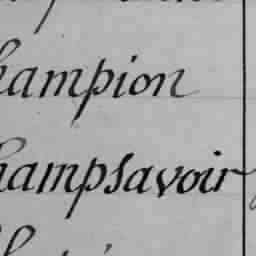 hampion
hampsavoir